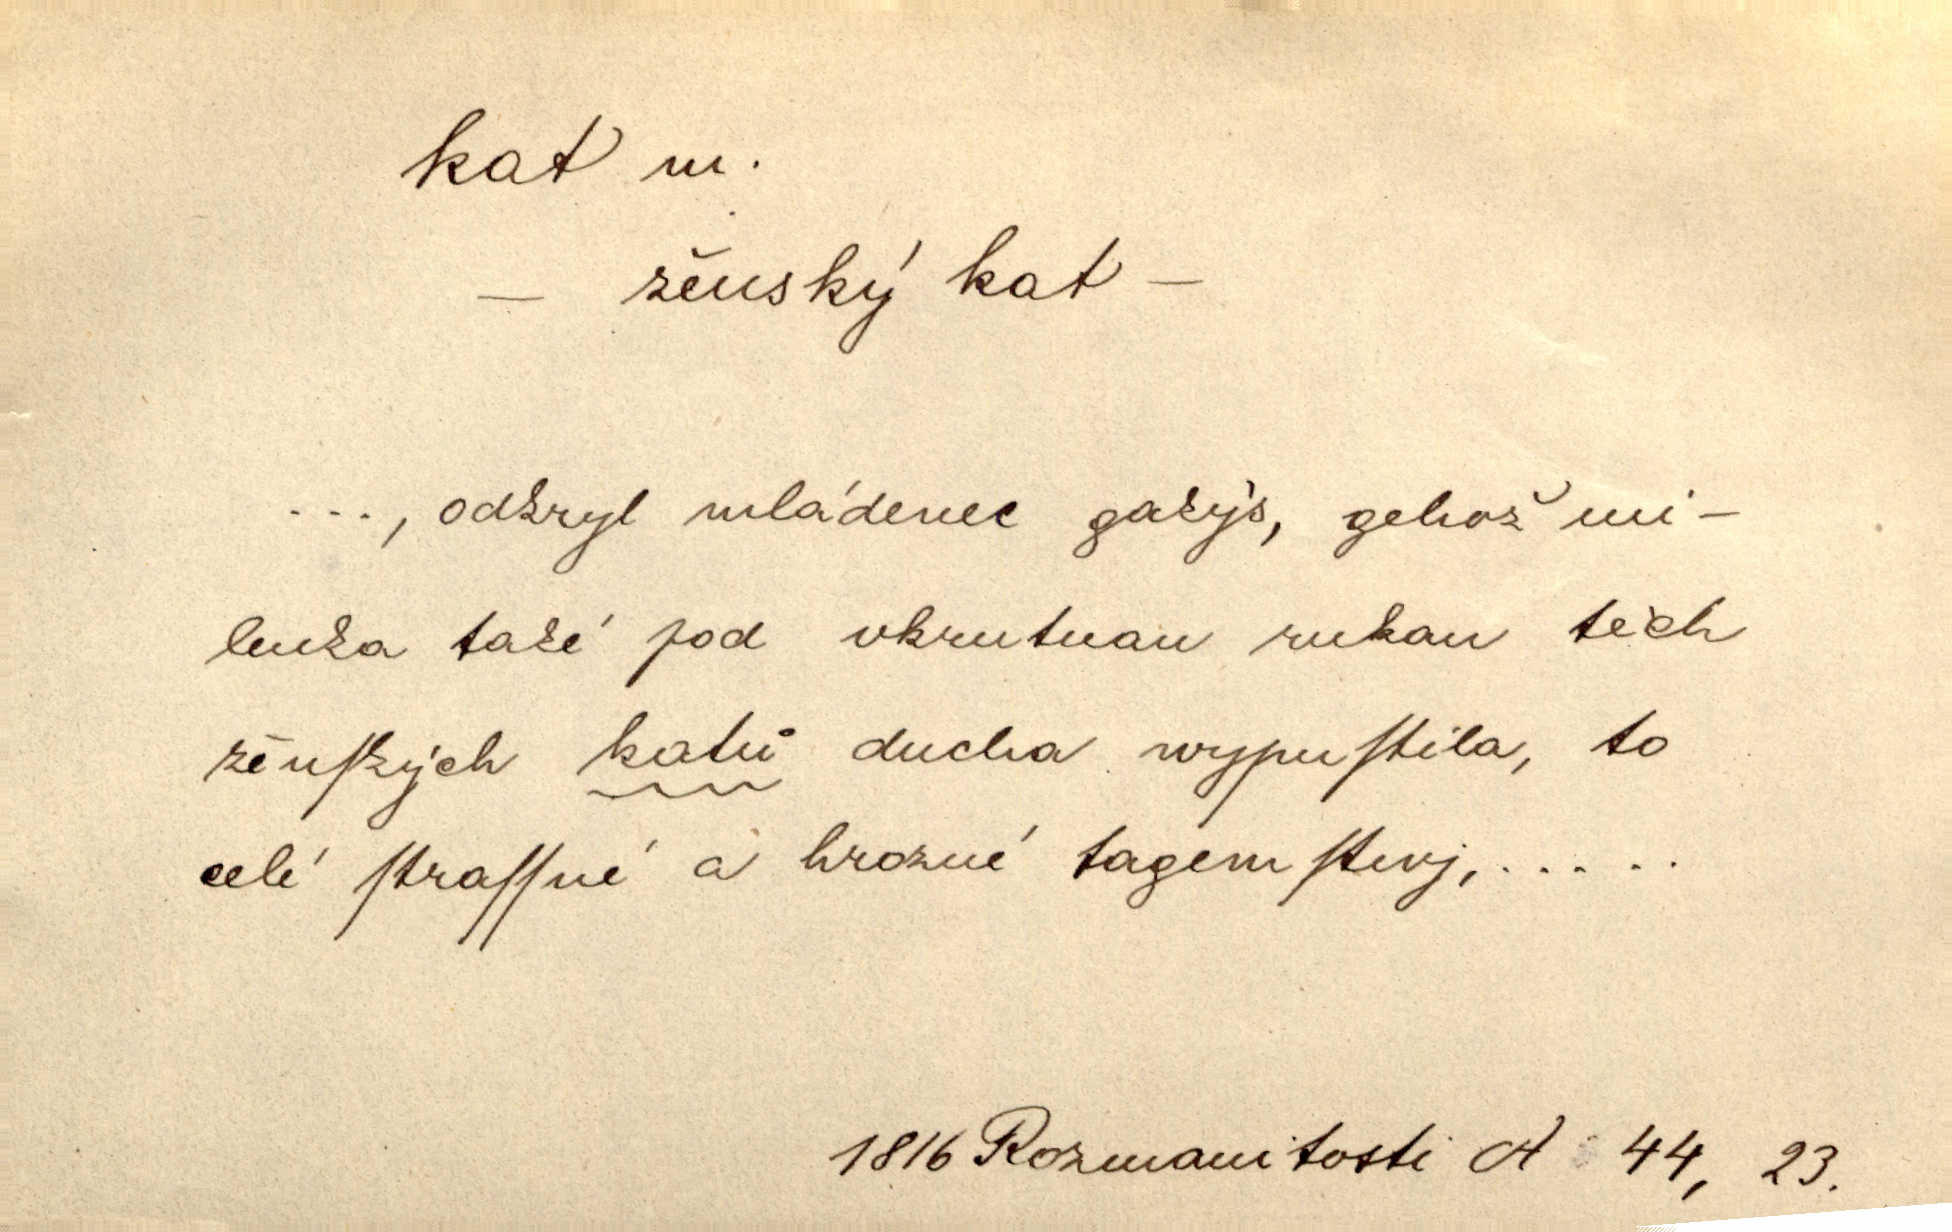 kat m.
— ženský kat —
..., odkryl mládenec gakýs, gehož mi-
lenka také pod vkrutnau rukau těch
ženſkých katů ducha wypuſtila, to
celé ſtraſſné a hrozné tagemſtwj, . . . . .
1816 Rozmanitosti A 44, 23.